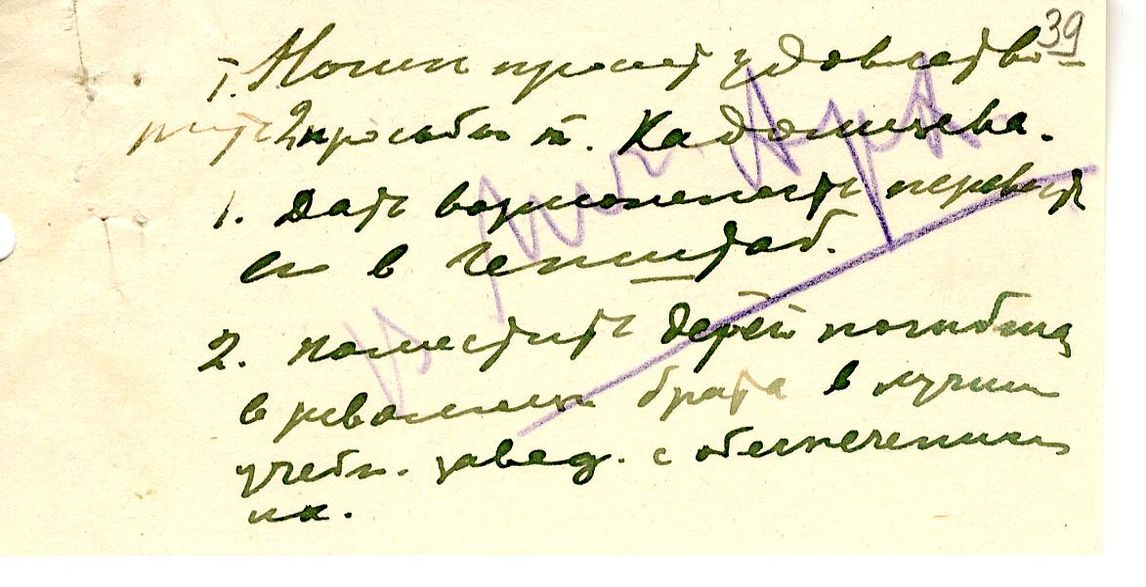 39
т. Ногин просит удовлетво-
рить 2 просьбы т. Кадомцева.
1. Дать возможность перевест
ись в Генштаб.
2. поместить детей
в революции брата в лучшие
учебн. завед. с обеспечением
их.